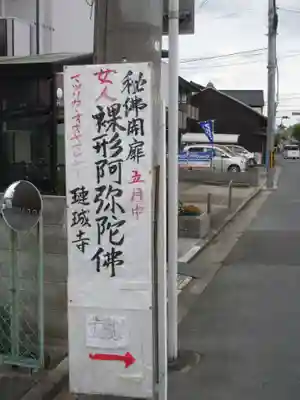 秘佛開扉 五月中
女人裸形阿弥陀佛
璉珹寺